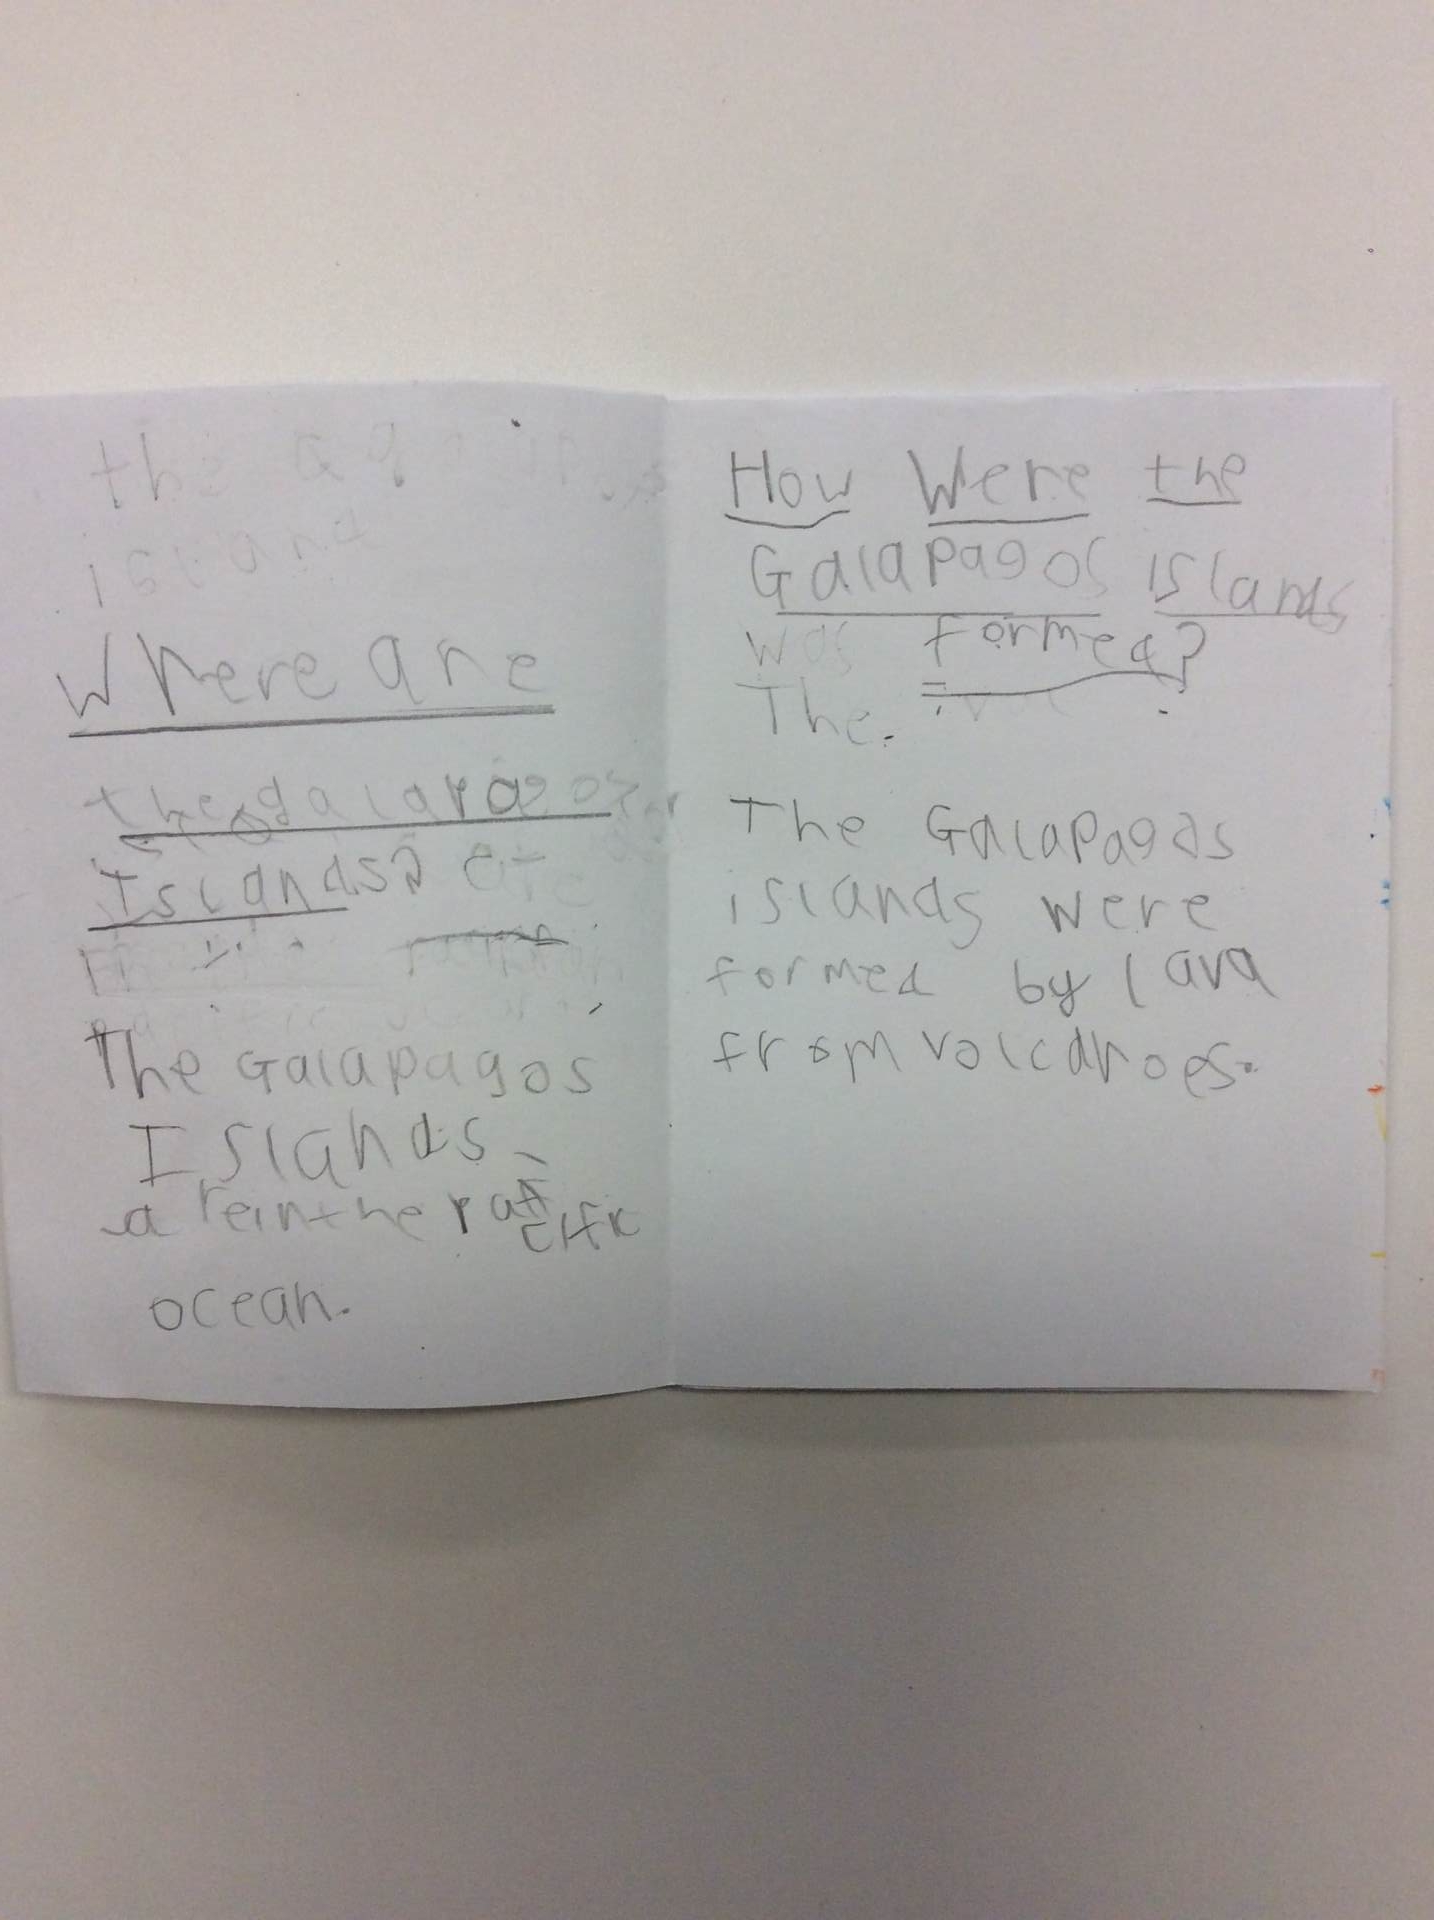 the
island
Where are
the galapagos
Islands?
The Galapagos
Islands
are in the pacific
ocean.
How Were the
Galapagos islands
was formed?
The.
The Galapagos
islands were
formed by lava
from volcanoes.